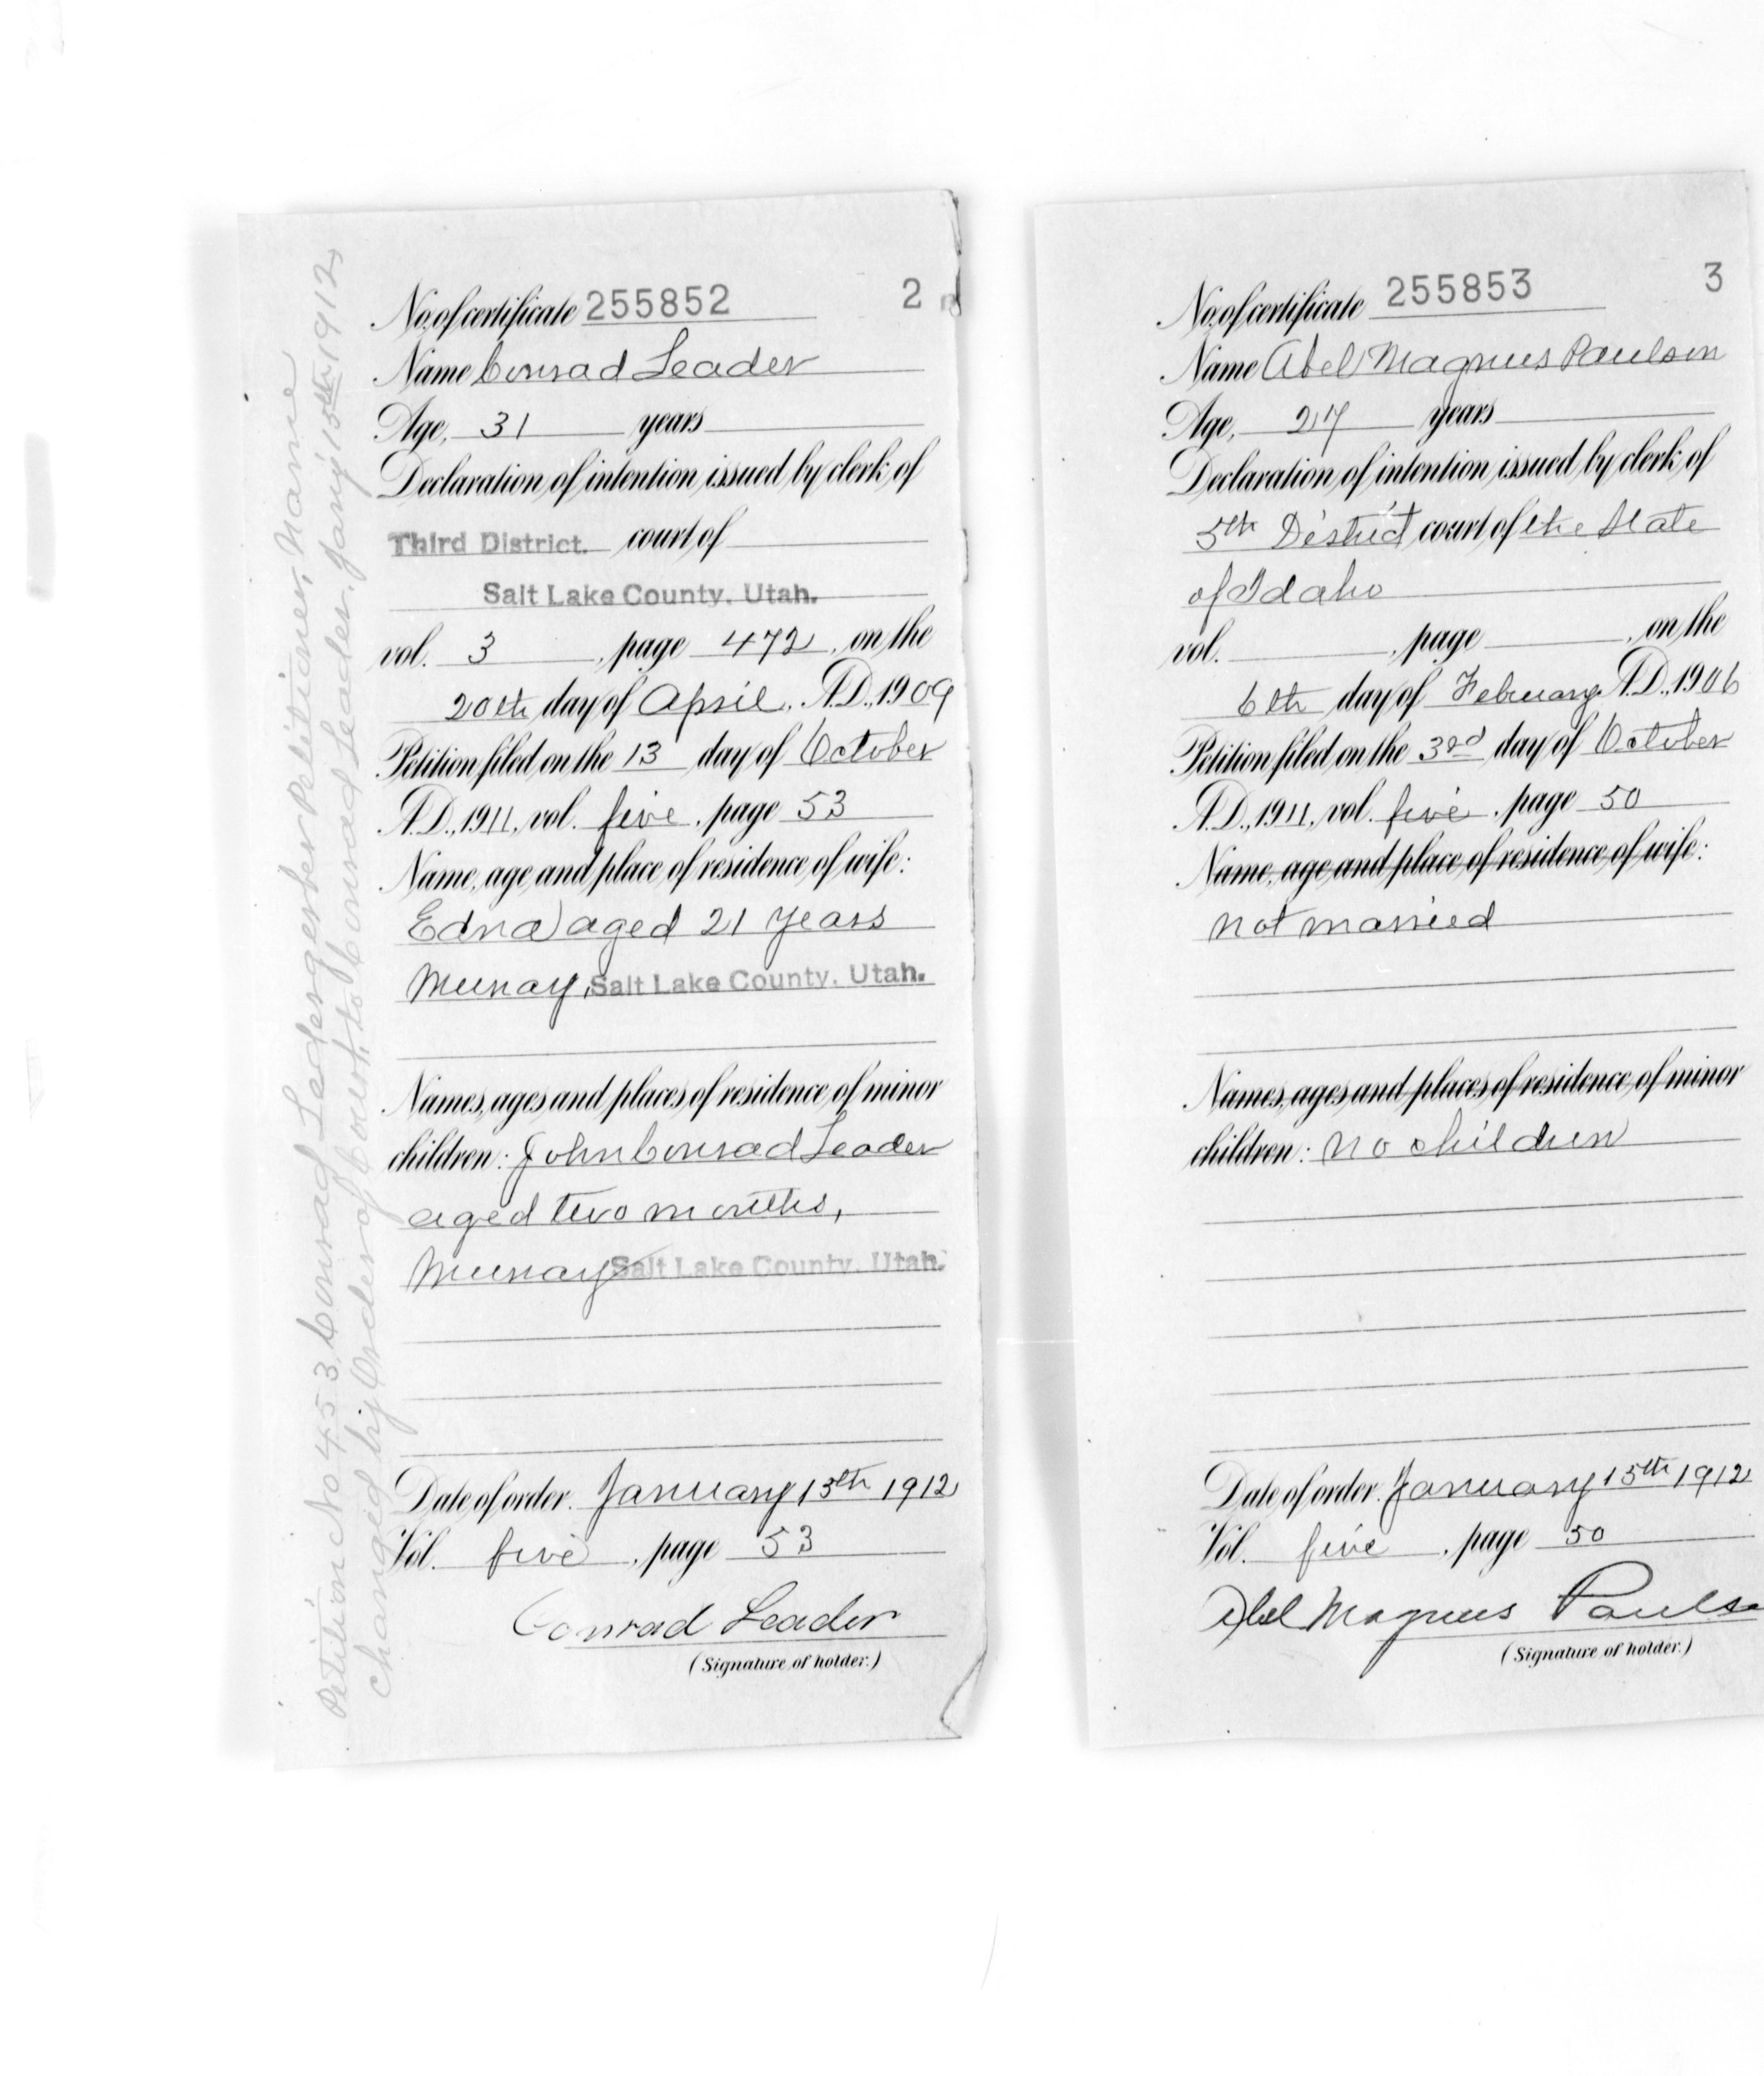 Petition No 453, Conrad Ledergerber Petitioner, Name
changed by Order of Court, to Conrad Leader, Jany 15th 1912
No. of certificate 255852 2
Name Conrad Leader
Age, 31 years
Declaration of intention issued by clerk of
Third District. court of
Salt Lake County, Utah.
vol. 3, page 472, on the
20th day of April, A.D., 1909
Petition filed on the 13 day of October
A.D., 1911, vol. five, page 53
Name, age and place of residence of wife:
Edna aged 21 years
Murray, Salt Lake County, Utah.
Names, ages and places of residence of minor
children: John Conrad Leader
aged two months,
Murray Salt Lake County, Utah.
Date of order. January 15th 1912
Vol. five, page 53
Conrad Leader
(Signature of holder.)
No. of certificate 255853 3
Name Abel Magnus Paulson
Age, 27 years
Declaration of intention issued by clerk of
5th District court of the State
of Idaho
vol. , page , on the
6th day of February A.D., 1906
Petition filed on the 3rd day of October
A.D., 1911, vol. five, page 50
Name, age and place of residence of wife:
not married
Names, ages and places of residence of minor
children: no children
Date of order. January 15th 1912
Vol. five, page 50
Abel Magnus Pauls
(Signature of holder.)